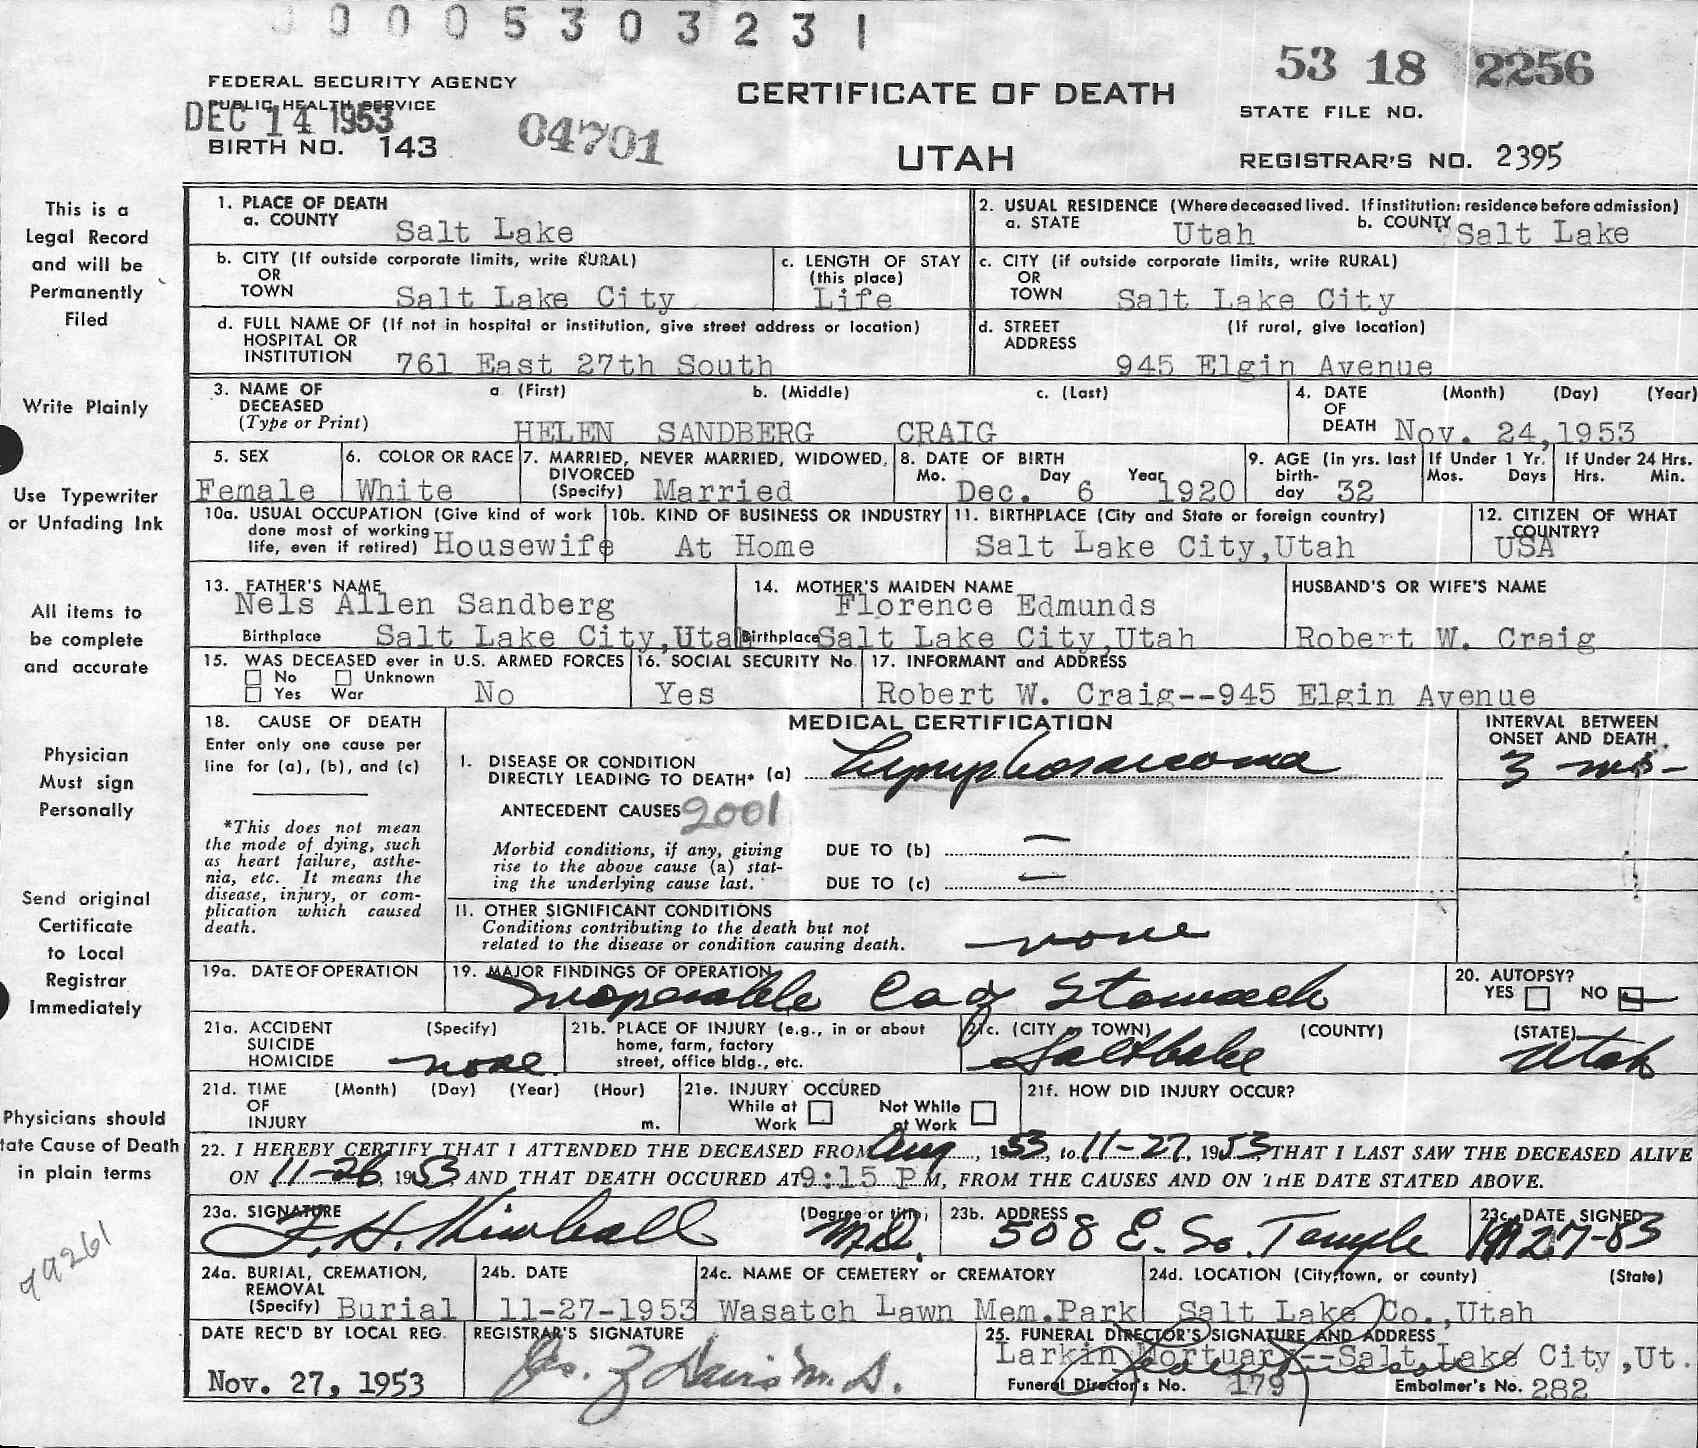 00005303231
FEDERAL SECURITY AGENCY
PUBLIC HEALTH SERVICE
DEC 14 1953
BIRTH NO. 143
04701
CERTIFICATE OF DEATH
UTAH
53 18 2256
STATE FILE NO.
REGISTRAR'S NO. 2395
This is a
Legal Record
and will be
Permanently
Filed
Write Plainly
Use Typewriter
or Unfading Ink
All items to
be complete
and accurate
Physician
Must sign
Personally
Send original
Certificate
to Local
Registrar
Immediately
Physicians should
tate Cause of Death
in plain terms
99261
1. PLACE OF DEATH
a. COUNTY Salt Lake
2. USUAL RESIDENCE (Where deceased lived. If institution: residence before admission)
a. STATE Utah b. COUNTY Salt Lake
b. CITY (If outside corporate limits, write RURAL)
OR
TOWN Salt Lake City
c. LENGTH OF STAY
(this place)
Life
c. CITY (if outside corporate limits, write RURAL)
OR
TOWN Salt Lake City
d. FULL NAME OF (If not in hospital or institution, give street address or location)
HOSPITAL OR
INSTITUTION 761 East 27th South
d. STREET (If rural, give location)
ADDRESS
945 Elgin Avenue
3. NAME OF a (First) b. (Middle) c. (Last)
DECEASED
(Type or Print) HELEN SANDBERG CRAIG
4. DATE (Month) (Day) (Year)
OF
DEATH Nov. 24,1953
5. SEX
Female
6. COLOR OR RACE
White
7. MARRIED, NEVER MARRIED, WIDOWED,
DIVORCED
(Specify) Married
8. DATE OF BIRTH
Mo. Day Year
Dec. 6 1920
9. AGE (In yrs. last
birth-
day 32
If Under 1 Yr.
Mos. Days
If Under 24 Hrs.
Hrs. Min.
10a. USUAL OCCUPATION (Give kind of work
done most of working
life, even if retired) Housewife
10b. KIND OF BUSINESS OR INDUSTRY
At Home
11. BIRTHPLACE (City and State or foreign country)
Salt Lake City,Utah
12. CITIZEN OF WHAT
COUNTRY?
USA
13. FATHER'S NAME
Nels Allen Sandberg
Birthplace Salt Lake City,Utah
14. MOTHER'S MAIDEN NAME
Florence Edmunds
Birthplace Salt Lake City,Utah
HUSBAND'S OR WIFE'S NAME
Robert W. Craig
15. WAS DECEASED ever in U.S. ARMED FORCES
No Unknown
Yes War No
16. SOCIAL SECURITY No.
Yes
17. INFORMANT and ADDRESS
Robert W. Craig--945 Elgin Avenue
18. CAUSE OF DEATH
Enter only one cause per
line for (a), (b), and (c)
*This does not mean
the mode of dying, such
as heart failure, asthe-
nia, etc. It means the
disease, injury, or com-
plication which caused
death.
MEDICAL CERTIFICATION
INTERVAL BETWEEN
ONSET AND DEATH
I. DISEASE OR CONDITION
DIRECTLY LEADING TO DEATH* (a) Lymphosarcoma 3 mos-
ANTECEDENT CAUSES 2001
Morbid conditions, if any, giving
rise to the above cause (a) stat-
ing the underlying cause last.
DUE TO (b) —
DUE TO (c) —
11. OTHER SIGNIFICANT CONDITIONS
Conditions contributing to the death but not
related to the disease or condition causing death. none
19a. DATE OF OPERATION
19. MAJOR FINDINGS OF OPERATION
Inoperable Ca of Stomach
20. AUTOPSY?
YES NO
21a. ACCIDENT (Specify)
SUICIDE
HOMICIDE none
21b. PLACE OF INJURY (e.g., in or about
home, farm, factory
street, office bldg., etc.
21c. (CITY OR TOWN) (COUNTY) (STATE)
Salt Lake Utah
21d. TIME (Month) (Day) (Year) (Hour)
OF
INJURY m.
21e. INJURY OCCURED
While at Not While
Work at Work
21f. HOW DID INJURY OCCUR?
22. I HEREBY CERTIFY THAT I ATTENDED THE DECEASED FROM Aug, 1953, to 11-27, 1953, THAT I LAST SAW THE DECEASED ALIVE
ON 11-26, 1953, AND THAT DEATH OCCURED AT 9:15 P M, FROM THE CAUSES AND ON THE DATE STATED ABOVE.
23a. SIGNATURE (Degree or title)
F. H. Kimball M.D.
23b. ADDRESS
508 E. So. Temple
23c. DATE SIGNED
27-53
24a. BURIAL, CREMATION,
REMOVAL
(Specify) Burial
24b. DATE
11-27-1953
24c. NAME OF CEMETERY or CREMATORY
Wasatch Lawn Mem.Park
24d. LOCATION (City, town, or county) (State)
Salt Lake Co.,Utah
DATE REC'D BY LOCAL REG.
Nov. 27, 1953
REGISTRAR'S SIGNATURE
Davis M.D.
25. FUNERAL DIRECTOR'S SIGNATURE AND ADDRESS
Larkin Mortuary--Salt Lake City,Ut.
Funeral Director's No. 179 Embalmer's No. 282